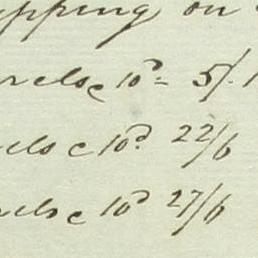 pping on
rels c 10ᵈ = 5/.
els c 10ᵈ 22/6
els c 10ᵈ 27/6